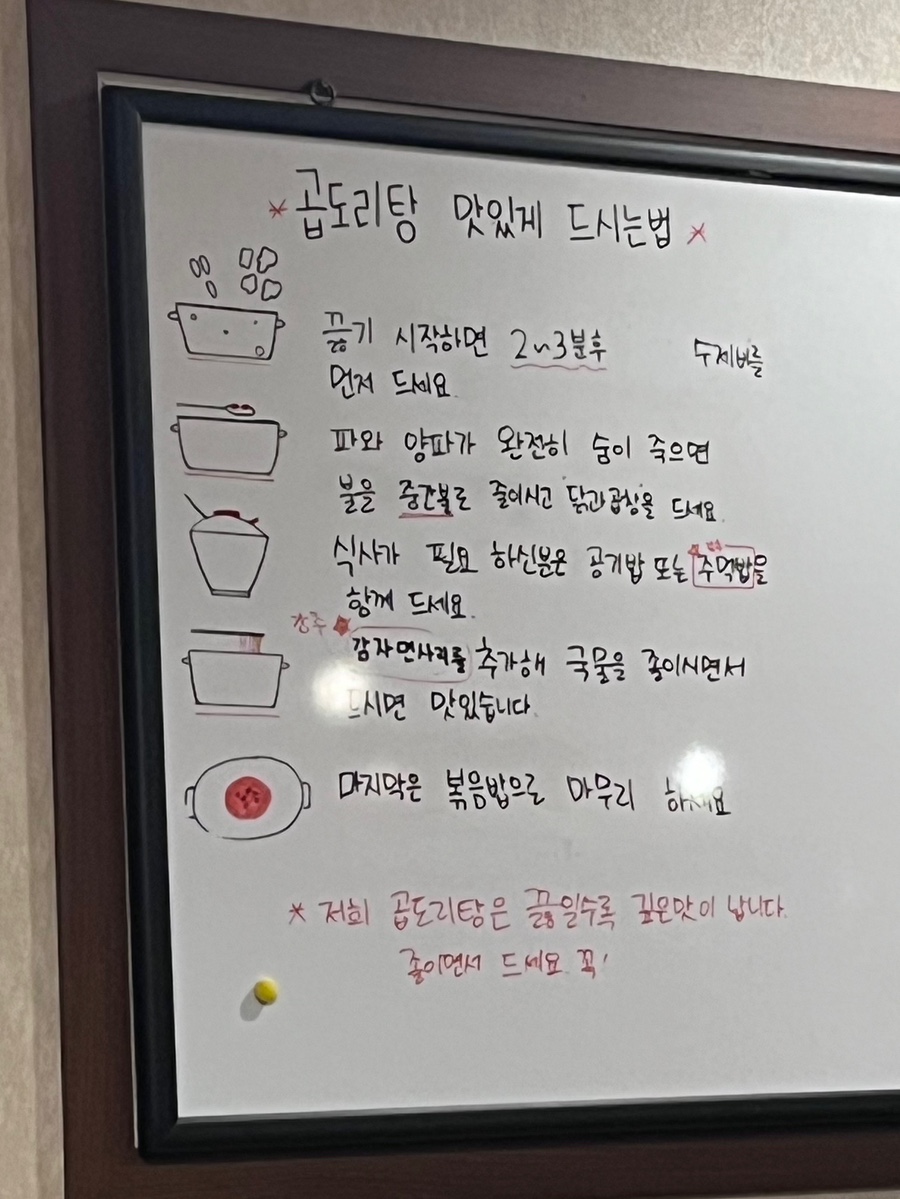 * 곱도리탕 맛있게 드시는법 *
끓기 시작하면 2~3분후 수제비를
먼저 드세요.
파와 양파가 완전히 숨이 죽으면
불을 중간불로 졸이시고 닭과곱창을 드세요.
식사가 필요 하신분은 공기밥 또는 주먹밥을
함께 드세요.
강추 ★
감자면사리를 추가해 국물을 졸이시면서
드시면 맛있습니다.
마지막은 볶음밥으로 마무리 하세요
* 저희 곱도리탕은 끓일수록 깊은맛이 납니다.
졸이면서 드세요 꼭!